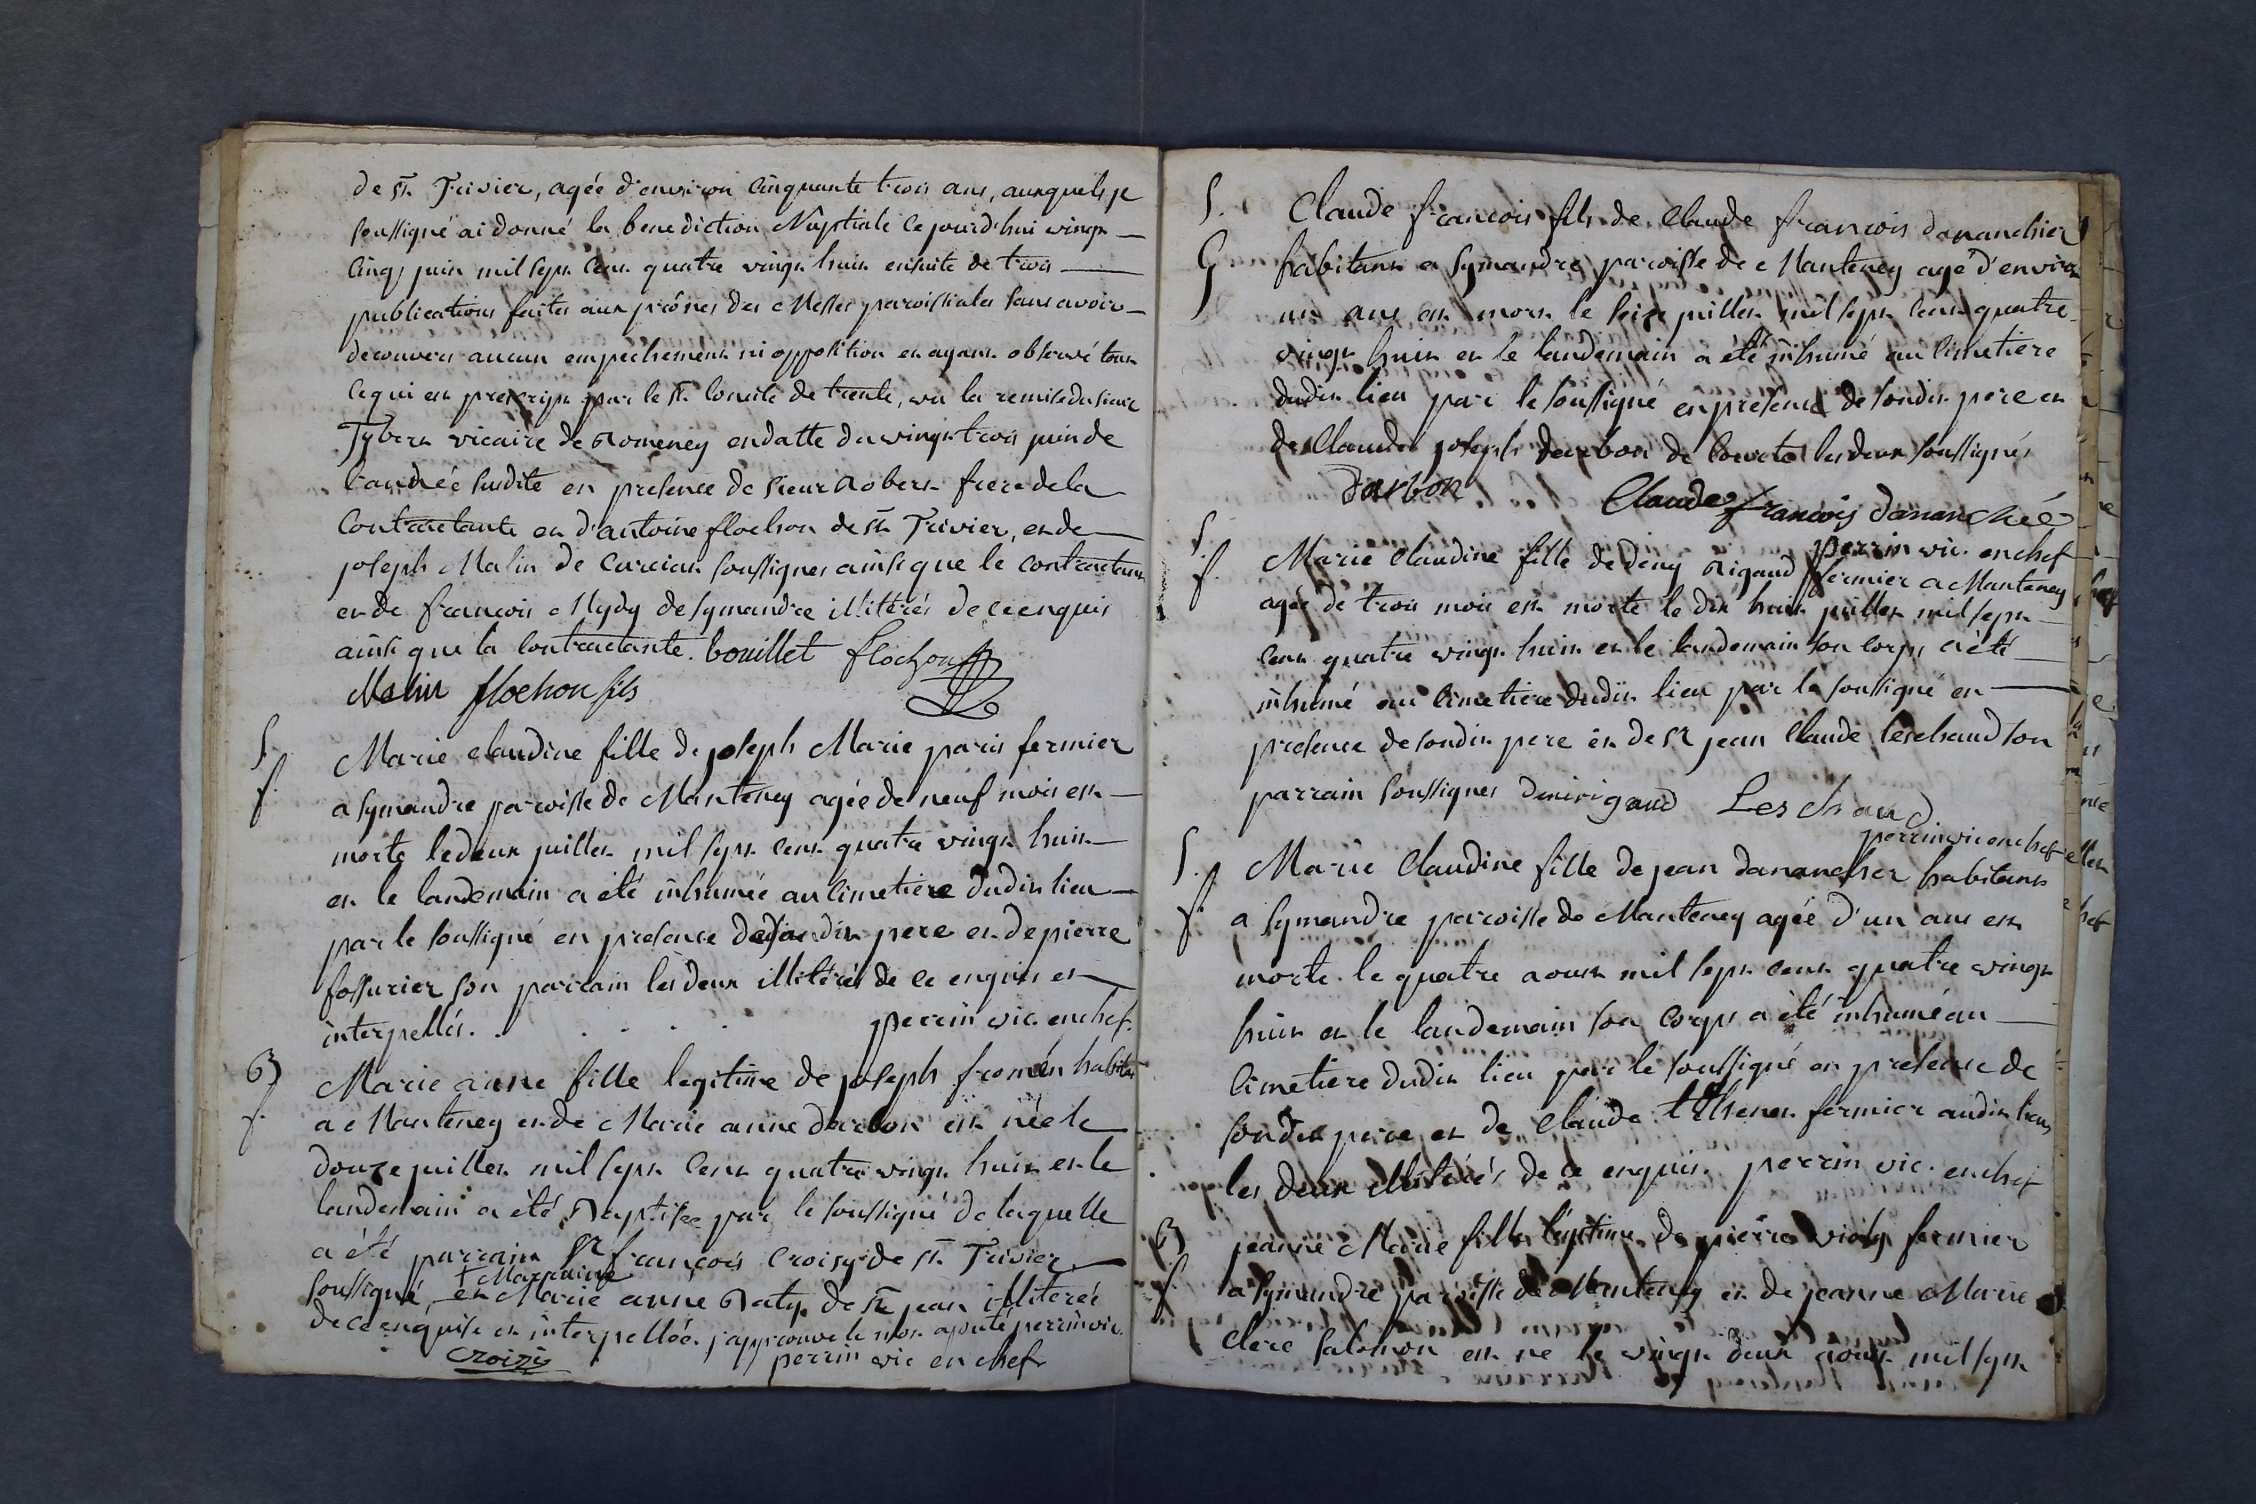 de St. Trivier, agée d'environ Cinquante trois ans, auxquels je
soussigné ai donné la benediction Nuptiale ce jourd'hui vingt
cinq juin mil sept cent quatre vingt huit ensuite de trois
publications faites aux prônes des Messes paroissiales sans avoir
decouvert aucun empechement ni opposition et ayant observé tout
ce qui est prescript par le St. Concile de trente, vu la remise du sieur
Tybert vicaire de Romeney en datte du vingt trois juin de
l'année susdite en presence de sieur Robert frere de la
Contractante et d'antoine flochon de St. Trivier, et de
joseph Malin de Curciat soussignes ainsi que le contractant
et de francois Mydy de symandre illitérés de ce enquis
ainsi que la contractante. bouillet flochon
Malin flochon fils
S.
f.
Marie claudine fille de joseph Marie paris fermier
a symandre paroisse de Manteney agée de neuf mois est
morte le deux juillet mil sept cent quatre vingt huit
et le landemain a été inhumée au cimetiere dudit lieu
par le soussigné en presence de sondit pere et de pierre
fossurier son parrain les deux illitérés de ce enquis et
interpellés. . . . . perrin vic. en chef.
B
f.
Marie anne fille legitime de joseph froment habitant
a Manteney et de Marie anne darbon est née le
douze juillet mil sept cent quatre vingt huit et le
landemain a été Baptisée par le soussigné de laquelle
a été parrain Sr francois Croisy de St. Trivier
Marraine
soussigné, et Marie anne Baty de St jean illiterée
de ce enquise et interpellée. j'approuve le mot ajouté perrin vic.
croizy perrin vic en chef
S.
G
Claude francois fils de Claude francois dananchier
habitant a symandre paroisse de Manteney agé d'environ
un ans est mort le seize juillet mil sept cent quatre
vingt huit et le landemain a été inhumé au cimetiere
dudit lieu par le soussigné en presence de sondit pere et
de Claude joseph darbon de les deux soussignés
darbon Claude francois dananché
perrin vic. en chef
S.
f.
Marie Claudine fille de deny Rigaud fermier a Manteney
agée de trois mois est morte le dix huit juillet mil sept
cent quatre vingt huit et le landemain son corps a été
inhumé au cimetiere dudit lieu par le soussigné en
presence de sondit pere et de Sr jean Claude leschaud son
parrain soussignes Leschaud
perrin vic en chef
S.
f.
Marie Claudine fille de jean danancher habitant
a symandre paroisse de Manteney agée d'un ans est
morte le quatre aoust mil sept cent quatre vingt
huit et le landemain son corps a été inhumé au
cimetiere dudit lieu par le soussigné en presence de
sondit pere et de Claude fermier audit lieu
les deux illitérés de ce enquis perrin vic. en chef
B
f.
jeanne Marie fille legitime de pierre fermier
a symandre paroisse de Manteney et de jeanne Marie
clere salomon est ne le vingt deux aoust mil sept